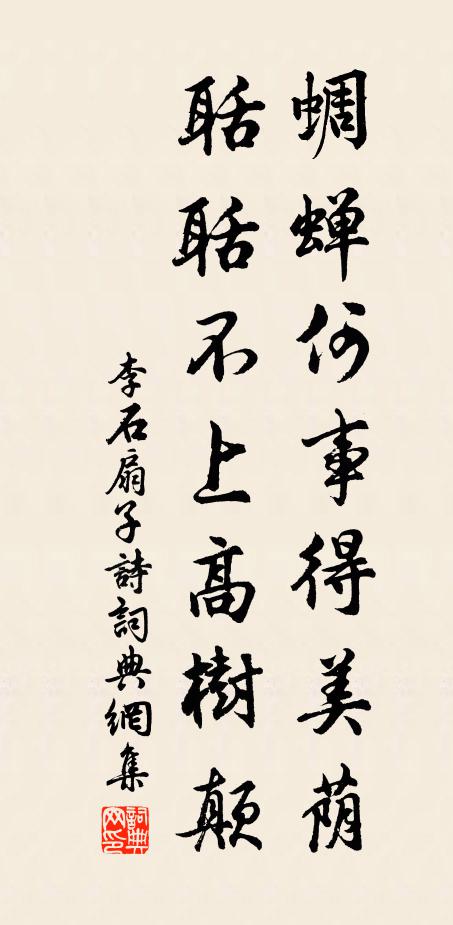 蜩蝉何事得美荫
聒聒不上高樹颠
李石扇子詩詞典網集
詞典网印